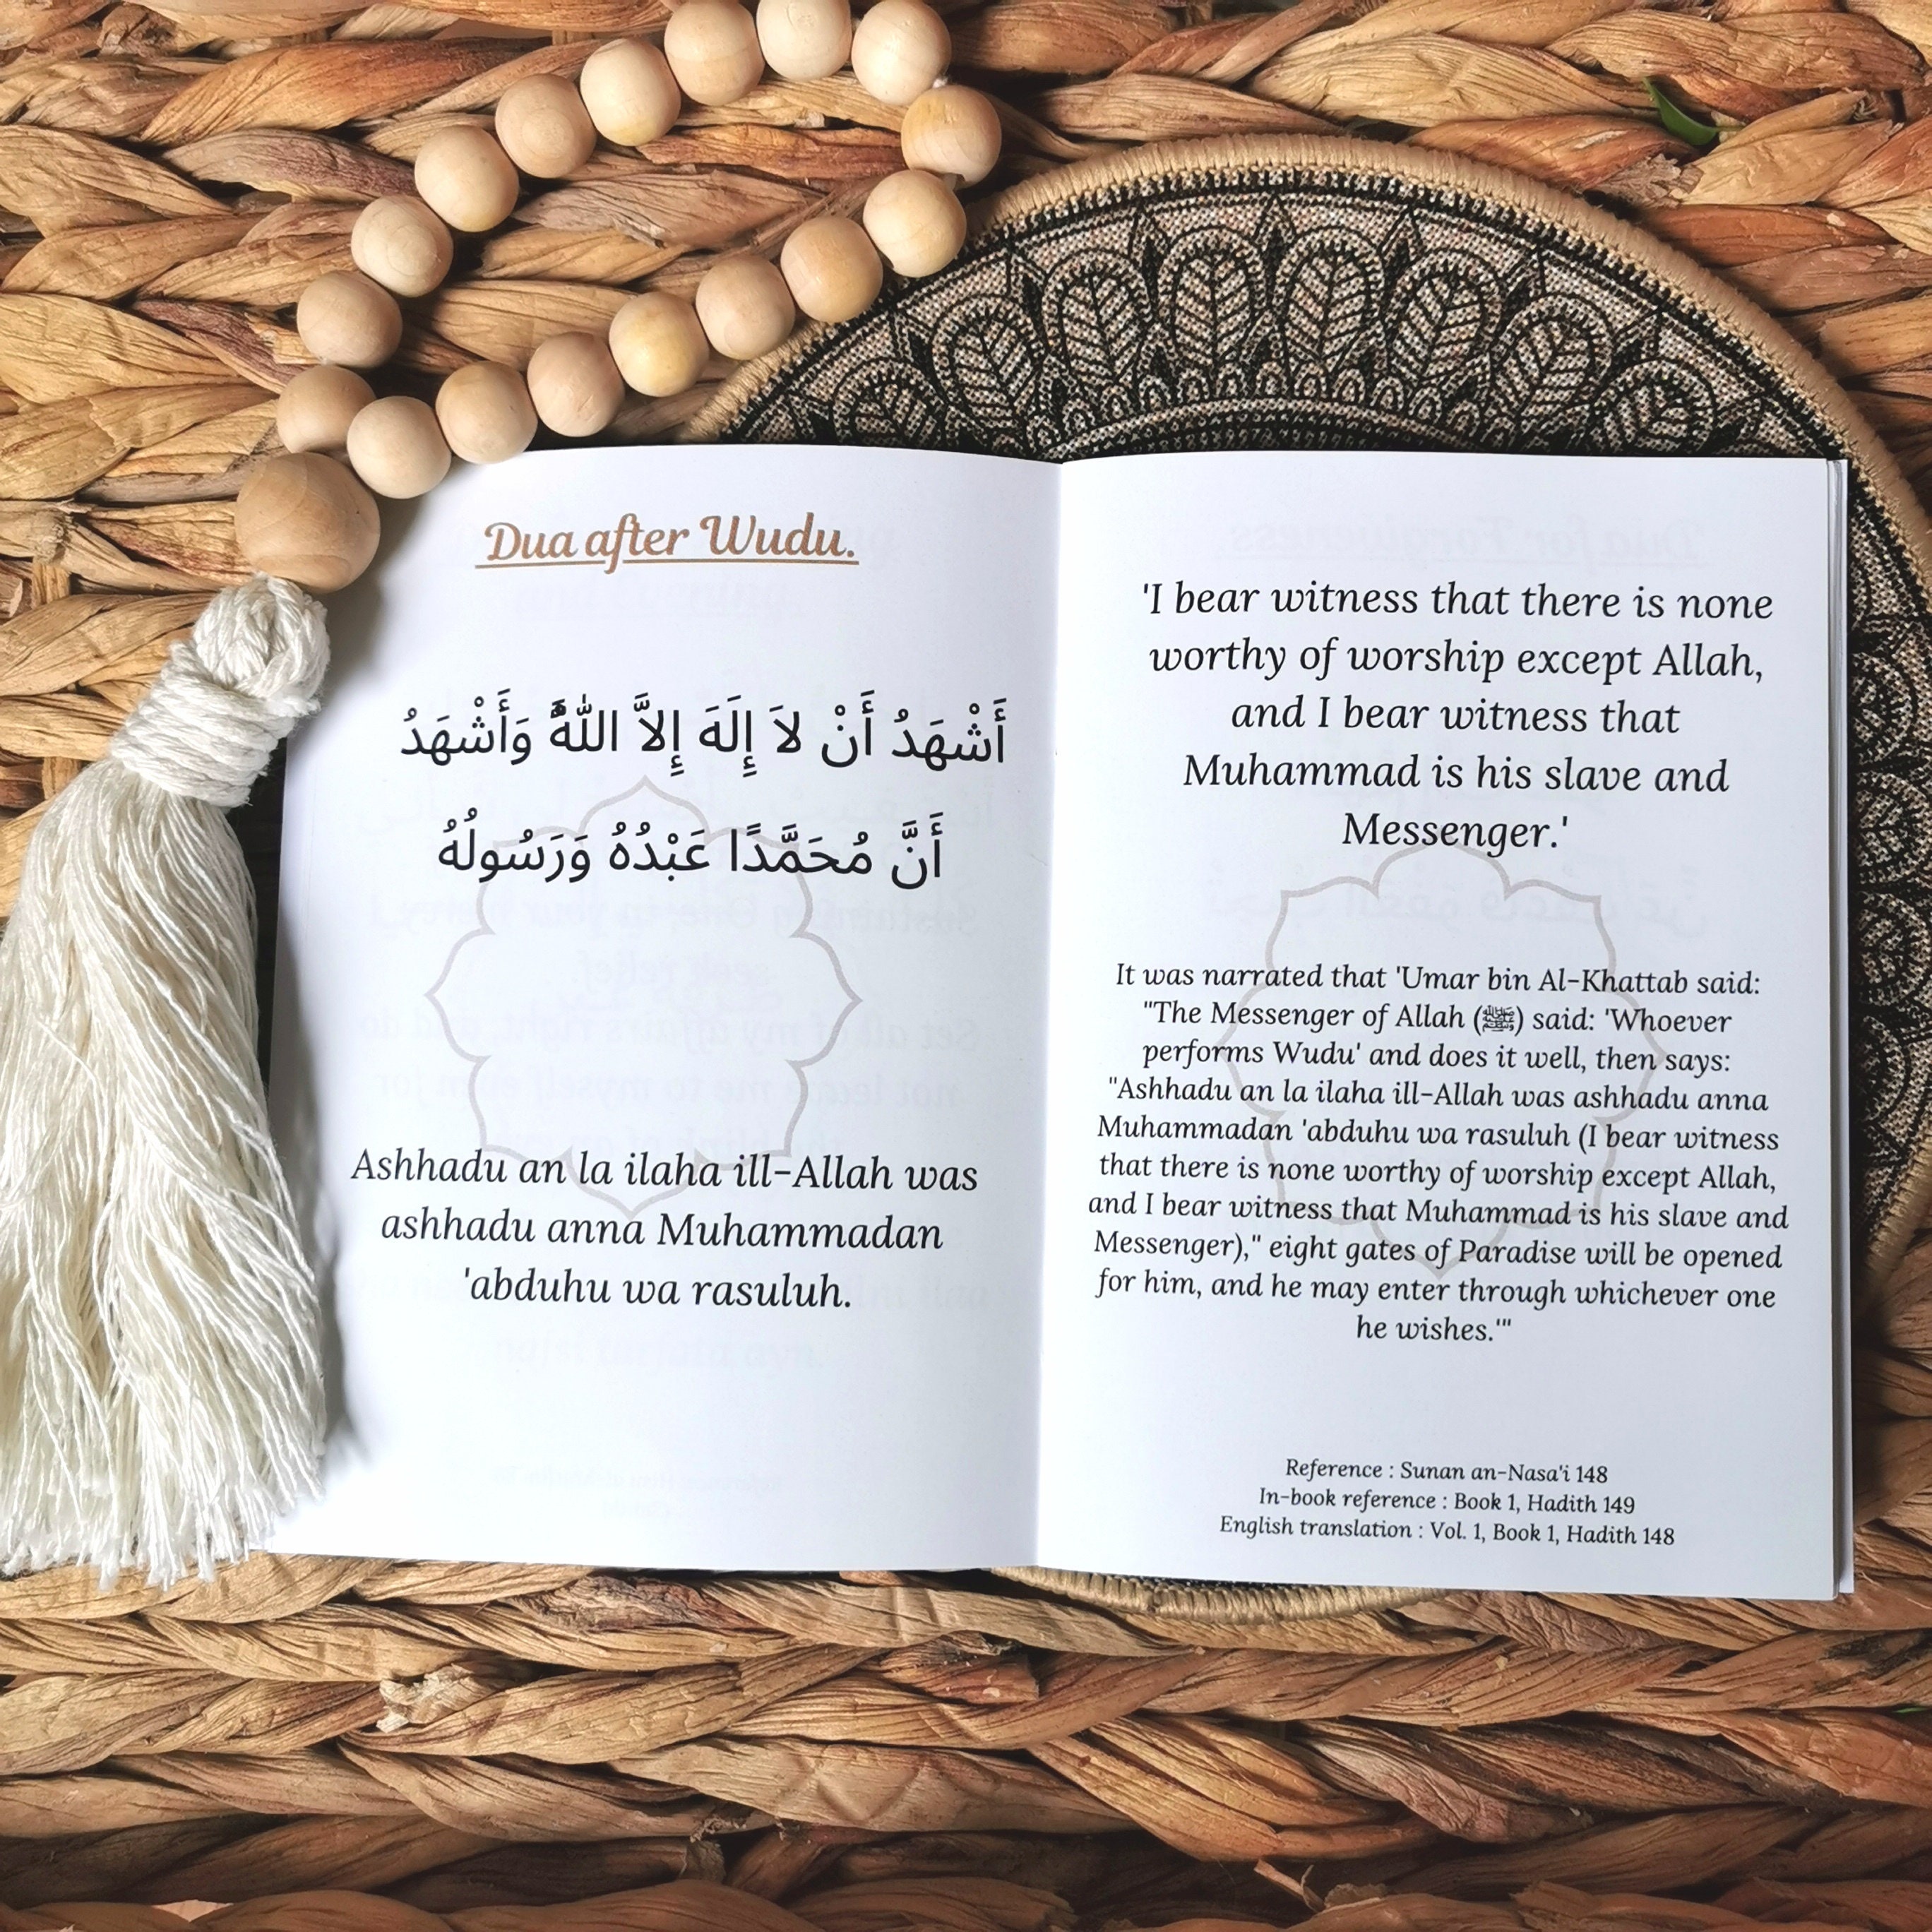 Dua after Wudu.
أَشْهَدُ أَنْ لاَ إِلَهَ إِلاَّ اللَّهُ وَأَشْهَدُ
أَنَّ مُحَمَّدًا عَبْدُهُ وَرَسُولُهُ
Ashhadu an la ilaha ill-Allah was
ashhadu anna Muhammadan
'abduhu wa rasuluh.
'I bear witness that there is none
worthy of worship except Allah,
and I bear witness that
Muhammad is his slave and
Messenger.'
It was narrated that 'Umar bin Al-Khattab said:
"The Messenger of Allah (ﷺ) said: 'Whoever
performs Wudu' and does it well, then says:
"Ashhadu an la ilaha ill-Allah was ashhadu anna
Muhammadan 'abduhu wa rasuluh (I bear witness
that there is none worthy of worship except Allah,
and I bear witness that Muhammad is his slave and
Messenger)," eight gates of Paradise will be opened
for him, and he may enter through whichever one
he wishes.'"
Reference : Sunan an-Nasa'i 148
In-book reference : Book 1, Hadith 149
English translation : Vol. 1, Book 1, Hadith 148